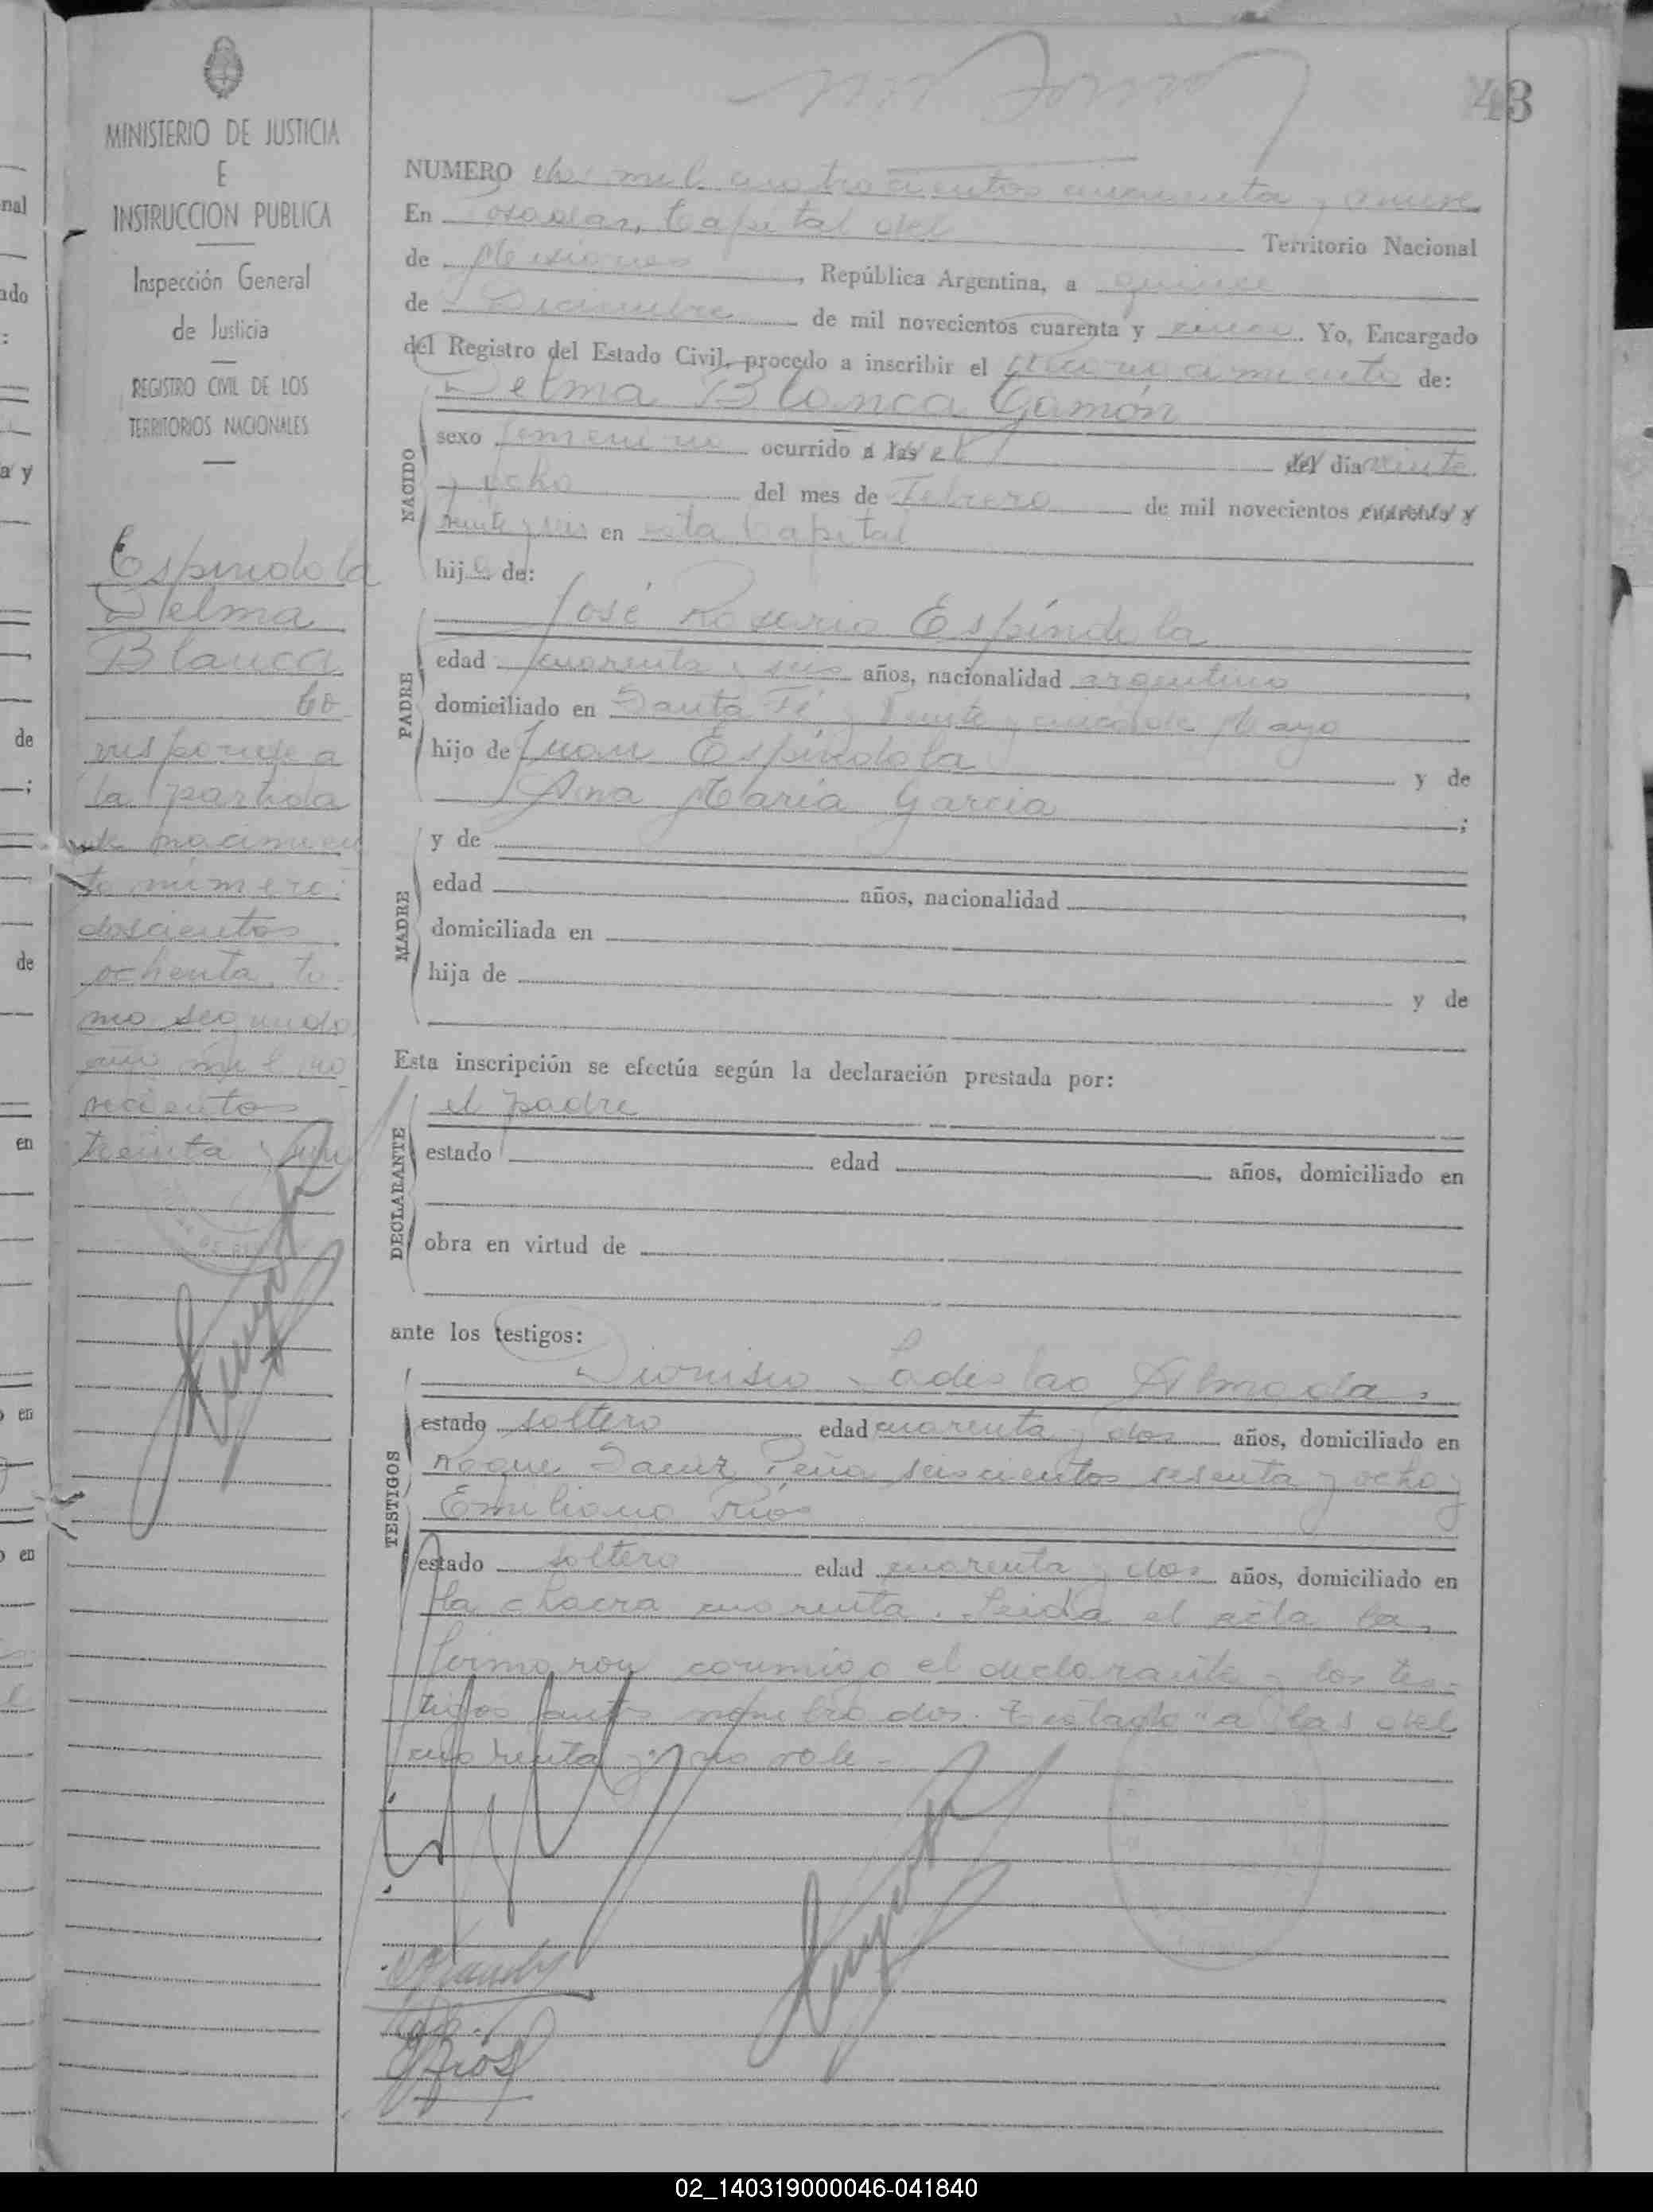 43
MINISTERIO DE JUSTICIA
E
INSTRUCCION PUBLICA
Inspección General
de Justicia
REGISTRO CIVIL DE LOS
TERRITORIOS NACIONALES
Espíndola
Delma
Blanca
Co
rresponde a
la partida
de nacimien
to número:
doscientos
ochenta, to
mo segundo
año mil no
vecientos
treinta y
NUMERO dos mil cuatrocientos cincuenta y nueve
En Posadas, Capital del Territorio Nacional
de Misiones, República Argentina, a quince
de Diciembre de mil novecientos cuarenta y cinco. Yo, Encargado
del Registro del Estado Civil, procedo a inscribir el reconocimiento de:
Delma Blanca Gamón
NACIDO
sexo femenino ocurrido a las el del día veinte
y ocho del mes de Febrero de mil novecientos cuarenta y
en esta Capital
hija de:
PADRE
José Rosario Espíndola
edad cuarenta y seis años, nacionalidad argentino
domiciliado en Santa Fé y Veinte y cinco de Mayo
hijo de Juan Espíndola y de
Ana María García ;
MADRE
y de
edad años, nacionalidad ,
domiciliada en
hija de y de
Esta inscripción se efectúa según la declaración prestada por:
DECLARANTE
el padre
estado edad años, domiciliado en
obra en virtud de
ante los testigos:
TESTIGOS
Dionisio Ladislao Almada,
estado soltero edad cuarenta y dos años, domiciliado en
Roque Saenz Peña seiscientos sesenta y ocho y
Emiliano Ríos
estado soltero edad cuarenta y dos años, domiciliado en
la chacra cuarenta. Leida el acta la
firmaron conmigo el declarante y los tes-
tigos antes nombrados. Testado "a las del
cuarenta y" no vale-
Ríos
02_140319000046-041840